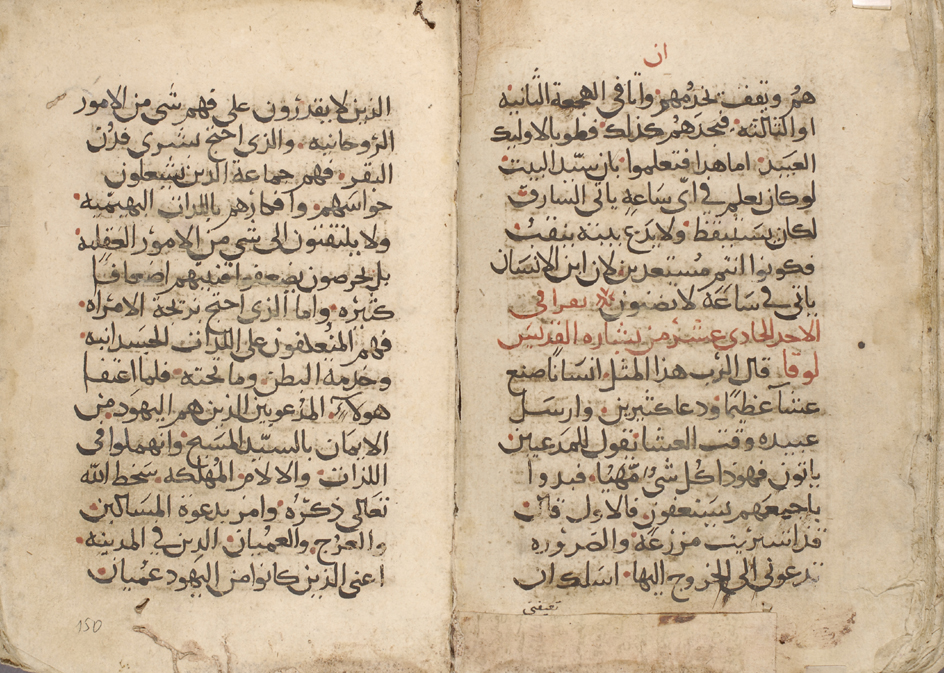 ان
هم ويقف يخدمهم واتا في الهجعة الثانيه
او الثالثه فيجدهم كذلك فطوبا لاوليك
العبيد اما هدا فتعلموا بان سيد البيت
لو كان يعلم في اي ساعه ياتي السارق
لكان يستيقظ ولا يدع بيته ينقب
فكونوا انتم مستعدين لان ابن الانسان
ياتي في ساعة لا يضنون يقرا في
الاحد الحادي عشر من بشاره القديس
لوقا قال الرب هذا المثل انسانا صنع
عشا عظيما ودعا كثيرين وارسل
عبيده وقت العشا يقول للمدعيين
ياتون فهوذا كل شي مهيا فبدوا
باجمعهم يستعفون فالاول قال
قد اشتريت مزرعة والضروره
تدعوني الي الخروج اليها اسلك ان
تعيفني
الذين لا يقدرون على فهم شي من الامور
الروحانيه والذي احتج بشرى فدن
البقر فهم جماعة الدين يشعلون
حواسهم وافكارهم باللدات البهيميه
ولا يلتفتون الى شي من الامور العقليه
بل يحرصون اضعافا
كثيره واما الذي احتج بزيجة الامراه
فهم المتعلقون على اللدات الجسدانيه
وخدمة البطن وما تحته فلما اعتفا
هولاء المدعويين الذين هم اليهود من
الايمان بالسيد المسيح وانهملوا في
اللذات والالام المهلكه سخط الله
تعالى ذكره وامر بدعوة المساكين
والعرج والعميان الدين في المدينه
اعنى الذين كانوا من اليهود عميان
150